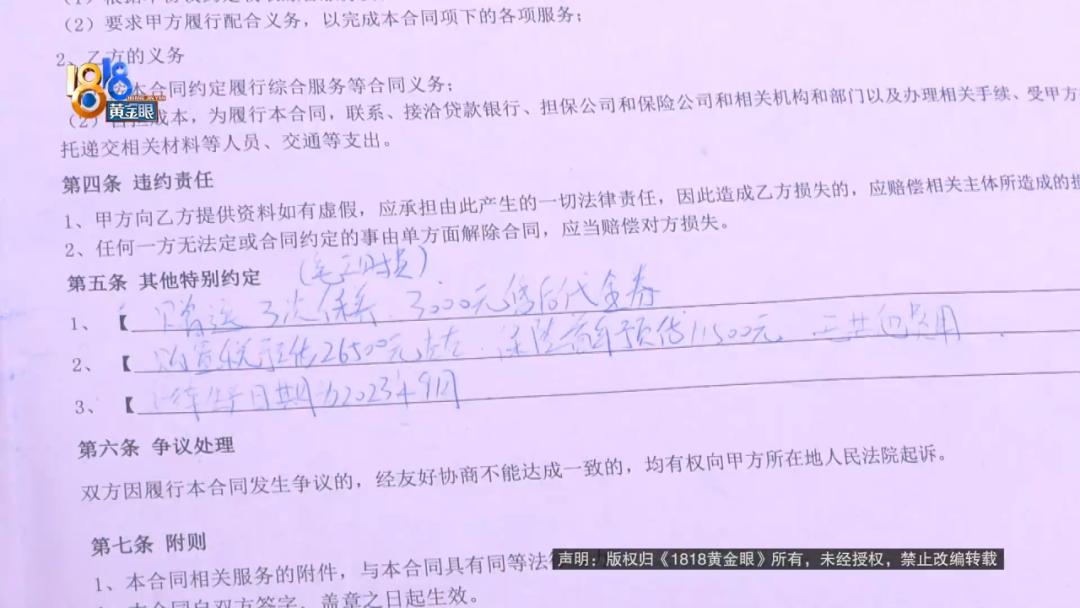 (2) 要求甲方履行配合义务，以完成本合同项下的各项服务；
2、乙方的义务
1818
黄金眼
本合同约定履行综合服务等合同义务；
(2) 自担成本，为履行本合同，联系、接洽贷款银行、担保公司和保险公司和相关机构和部门以及办理相关手续、受甲方
托递交相关材料等人员、交通等支出。
第四条 违约责任
1、甲方向乙方提供资料如有虚假，应承担由此产生的一切法律责任，因此造成乙方损失的，应赔偿相关主体所造成的损
2、任何一方无法定或合同约定的事由单方面解除合同，应当赔偿对方损失。
第五条 其他特别约定
1、【赠送3次保养 3000元售后代金券
2、【购置税预估26500元左右 保险首年预估11500元
3、【日期为2023年9月
第六条 争议处理
双方因履行本合同发生争议的，经友好协商不能达成一致的，均有权向甲方所在地人民法院起诉。
第七条 附则
1、本合同相关服务的附件，与本合同具有同等法
声明：版权归《1818黄金眼》所有，未经授权，禁止改编转载
本合同自双方签字、盖章之日起生效。